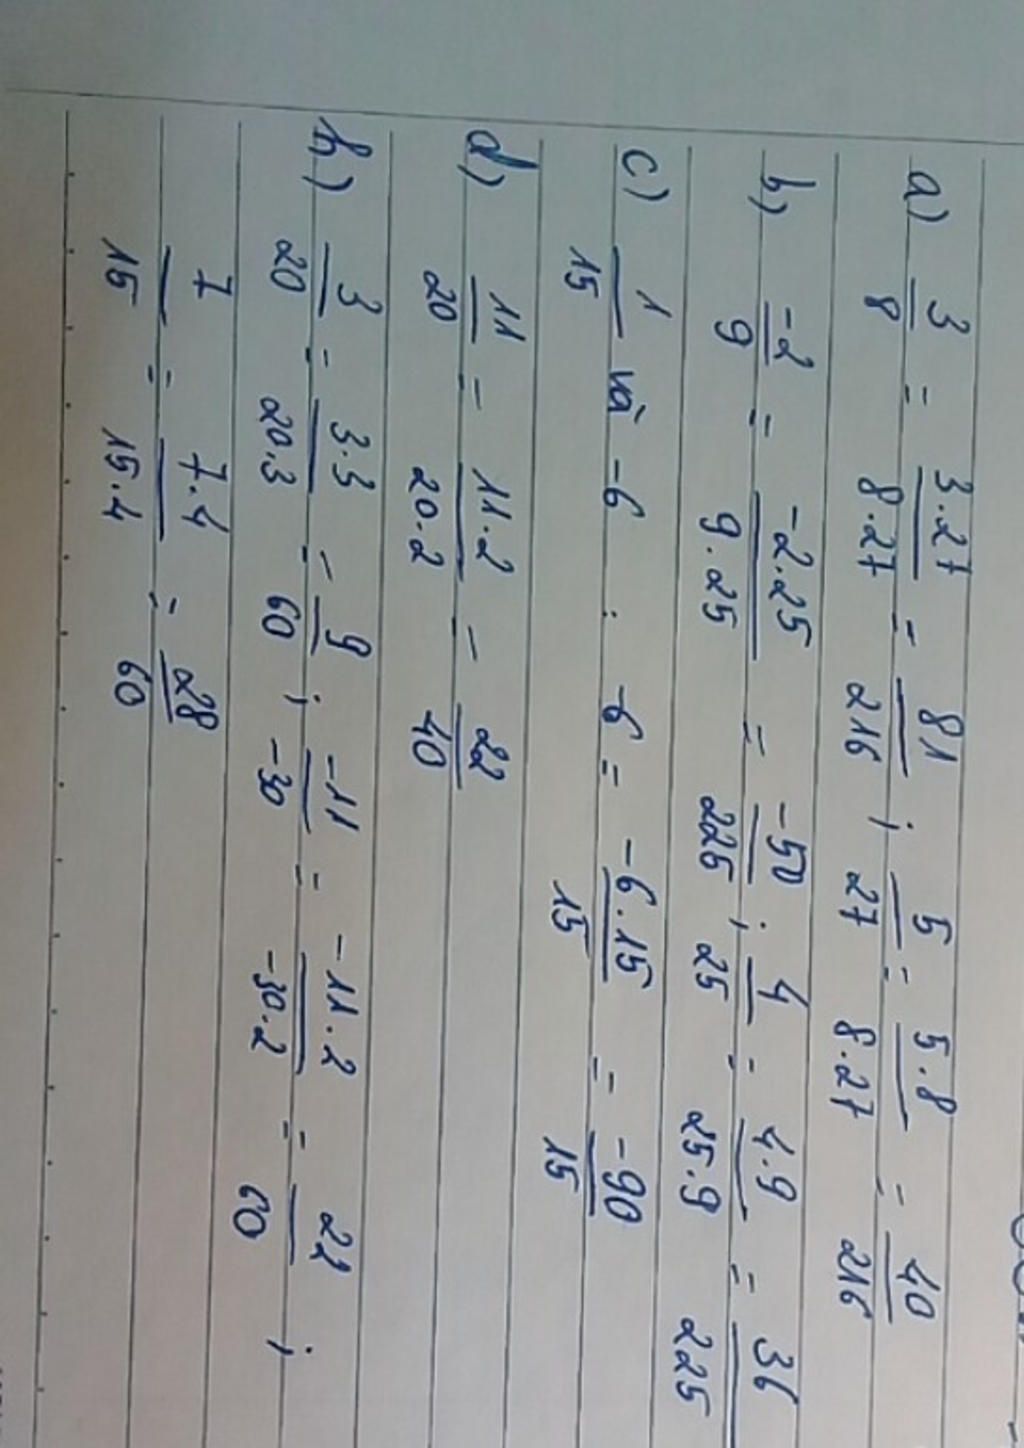 a) 3/8 = 3.27/8.27 = 81/216 ; 5/27 = 5.8/8.27 = 40/216
b) -2/9 = -2.25/9.25 = -50/225 ; 4/25 = 4.9/25.9 = 36/225
c) 1/15 và -6 : -6 = -6.15/15 = -90/15
d) 11/20 = 11.2/20.2 = 22/40
h) 3/20 = 3.3/20.3 = 9/60 ; -11/-30 = -11.2/-30.2 = 22/60 ;
7/15 = 7.4/15.4 = 28/60